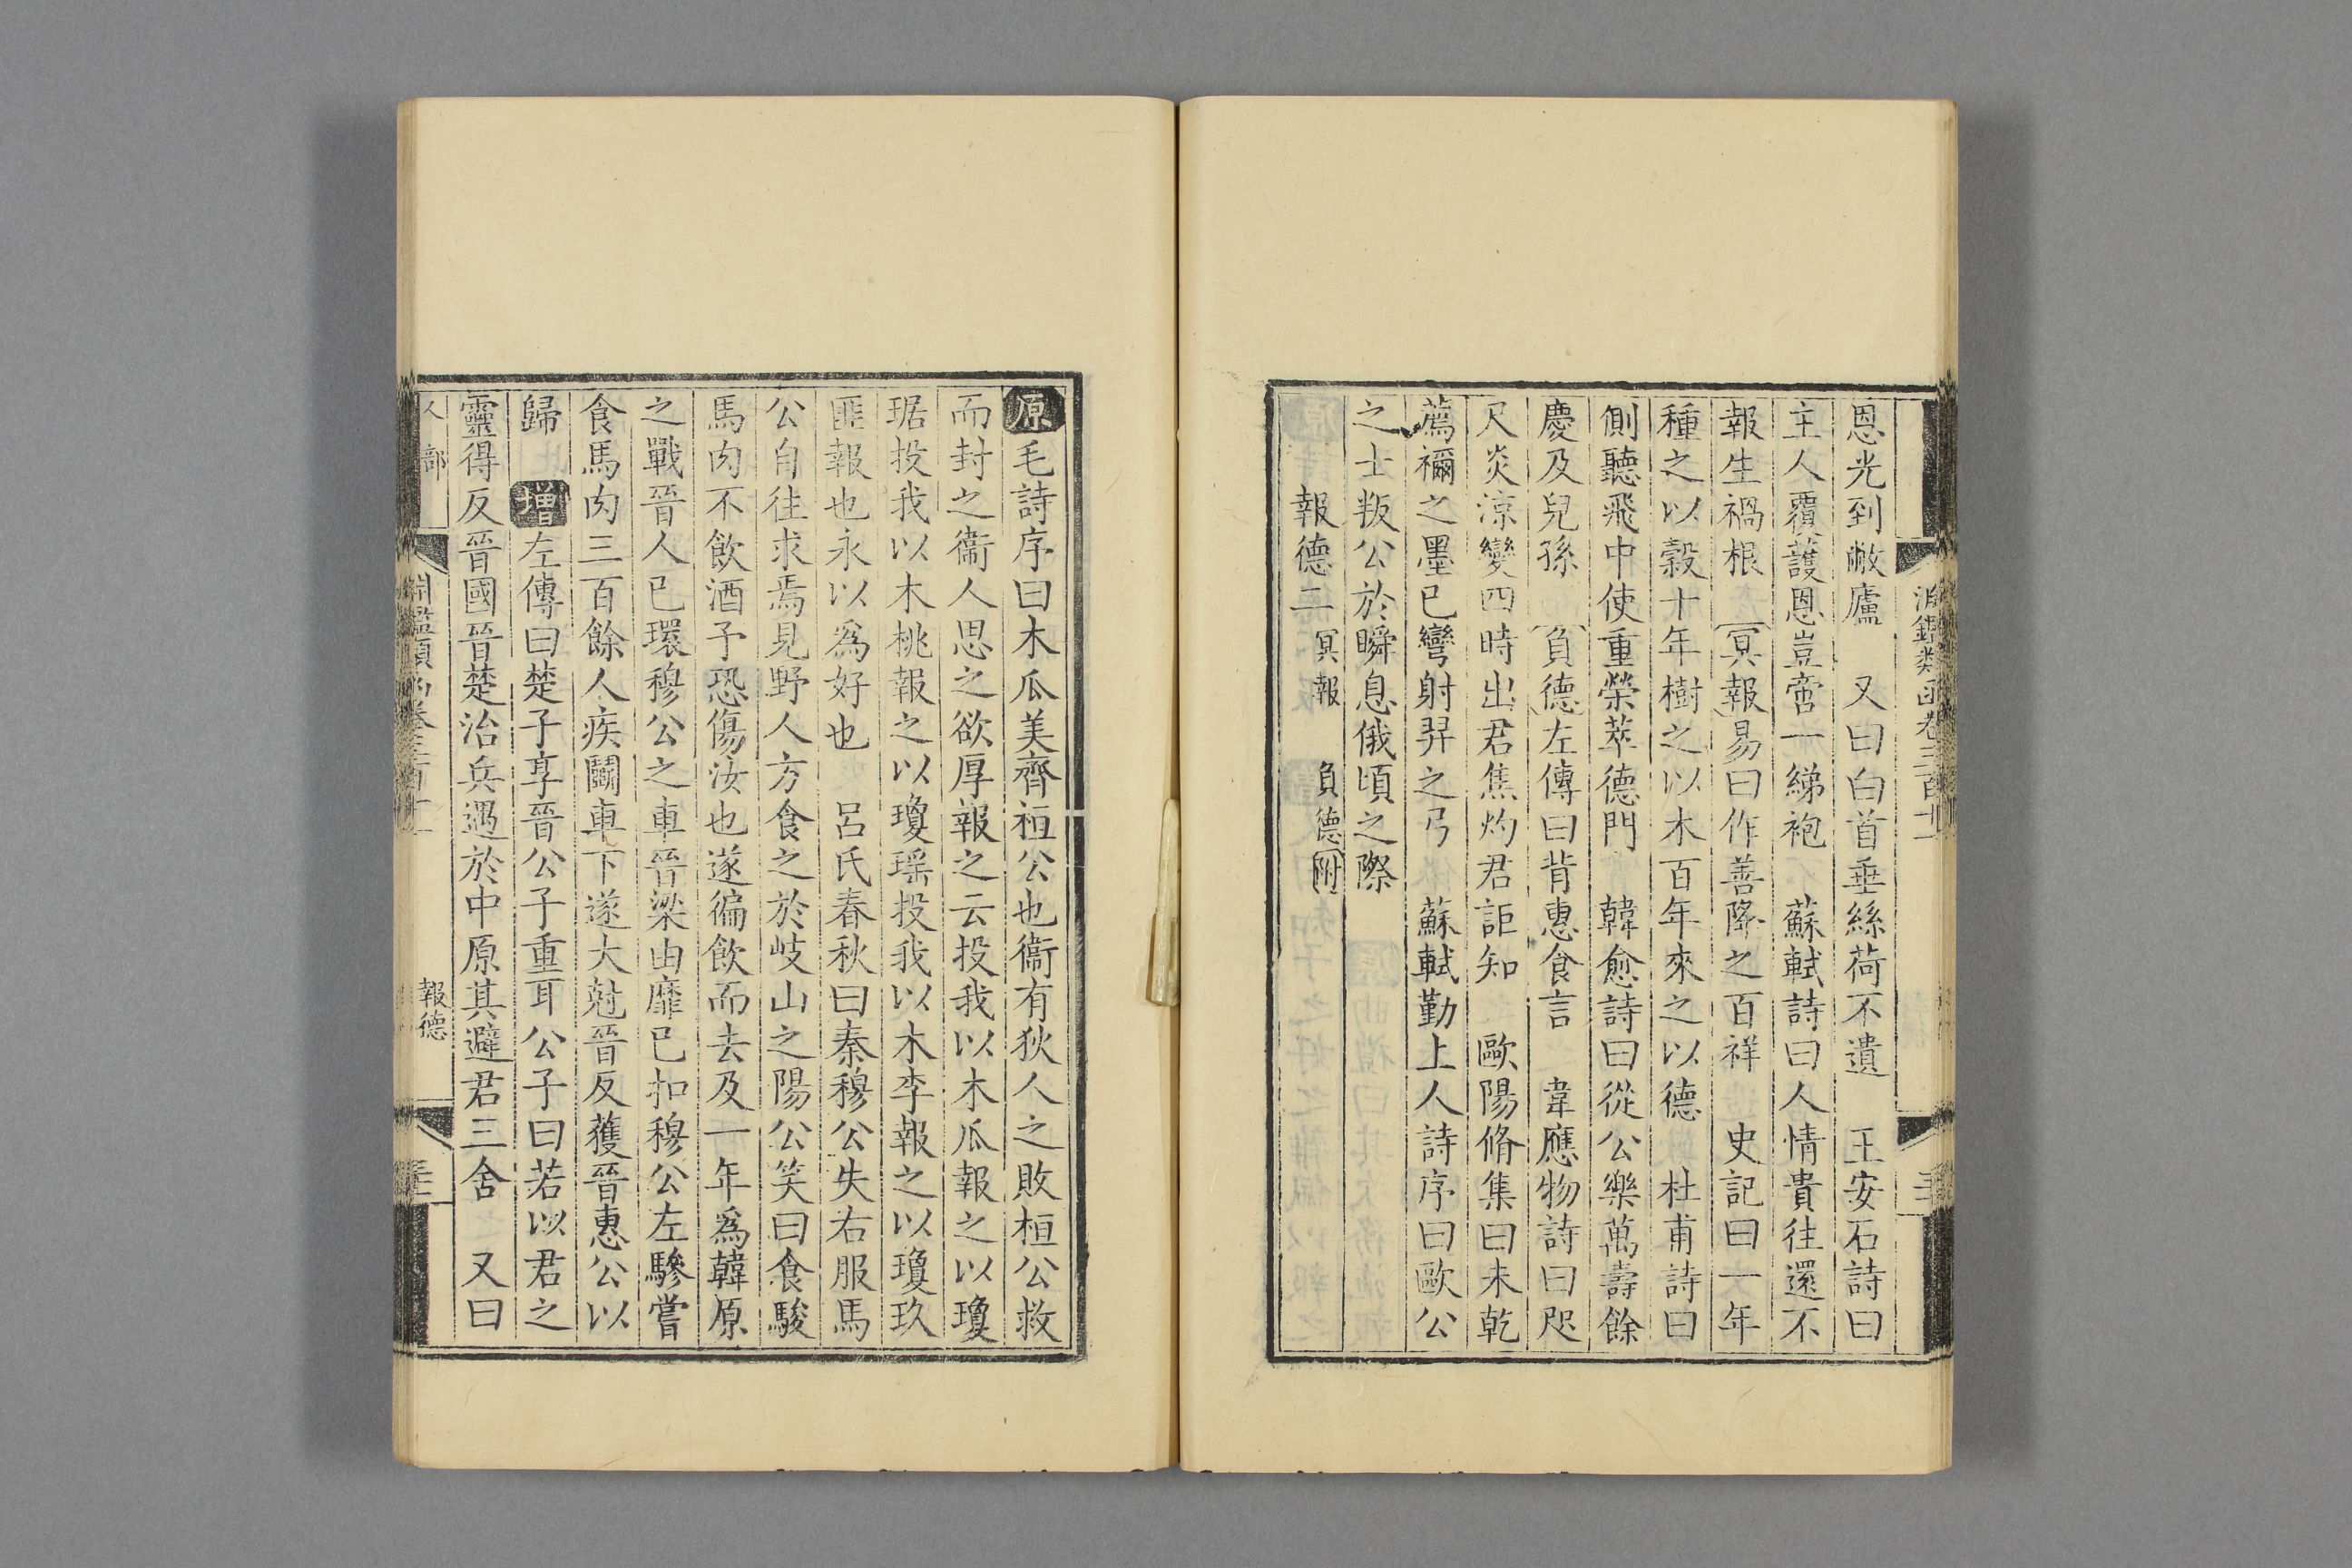 淵鑑類函卷三百十一
恩光到敝廬　又曰白首垂絲荷不遺　王安石詩曰
主人覆護恩豈啻一綈袍　蘇軾詩曰人情貴往還不
報生禍根　冥報易曰作善降之百祥　史記曰一年
種之以穀十年樹之以木百年來之以德　杜甫詩曰
側聽飛中使重榮萃德門　韓愈詩曰從公樂萬壽餘
慶及兒孫　負德左傳曰背惠食言　韋應物詩曰咫
尺炎涼變四時出君焦灼君詎知　歐陽脩集曰未乾
薦禰之墨已彎射羿之弓　蘇軾勤上人詩序曰歐公
之士叛公於瞬息俄頃之際
報德二　冥報　負德附
原毛詩序曰木瓜美齊桓公也衞有狄人之敗桓公救
而封之衞人思之欲厚報之云投我以木瓜報之以瓊
琚投我以木桃報之以瓊瑤投我以木李報之以瓊玖
匪報也永以爲好也　呂氏春秋曰秦穆公失右服馬
公自往求焉見野人方食之於岐山之陽公笑曰食駿
馬肉不飲酒予恐傷汝也遂徧飲而去及一年爲韓原
之戰晉人已環穆公之車晉梁由靡已扣穆公左驂嘗
食馬肉三百餘人疾鬭車下遂大尅晉反獲晉惠公以
歸　增左傳曰楚子享晉公子重耳公子曰若以君之
靈得反晉國晉楚治兵遇於中原其避君三舍　又曰
人部　報德